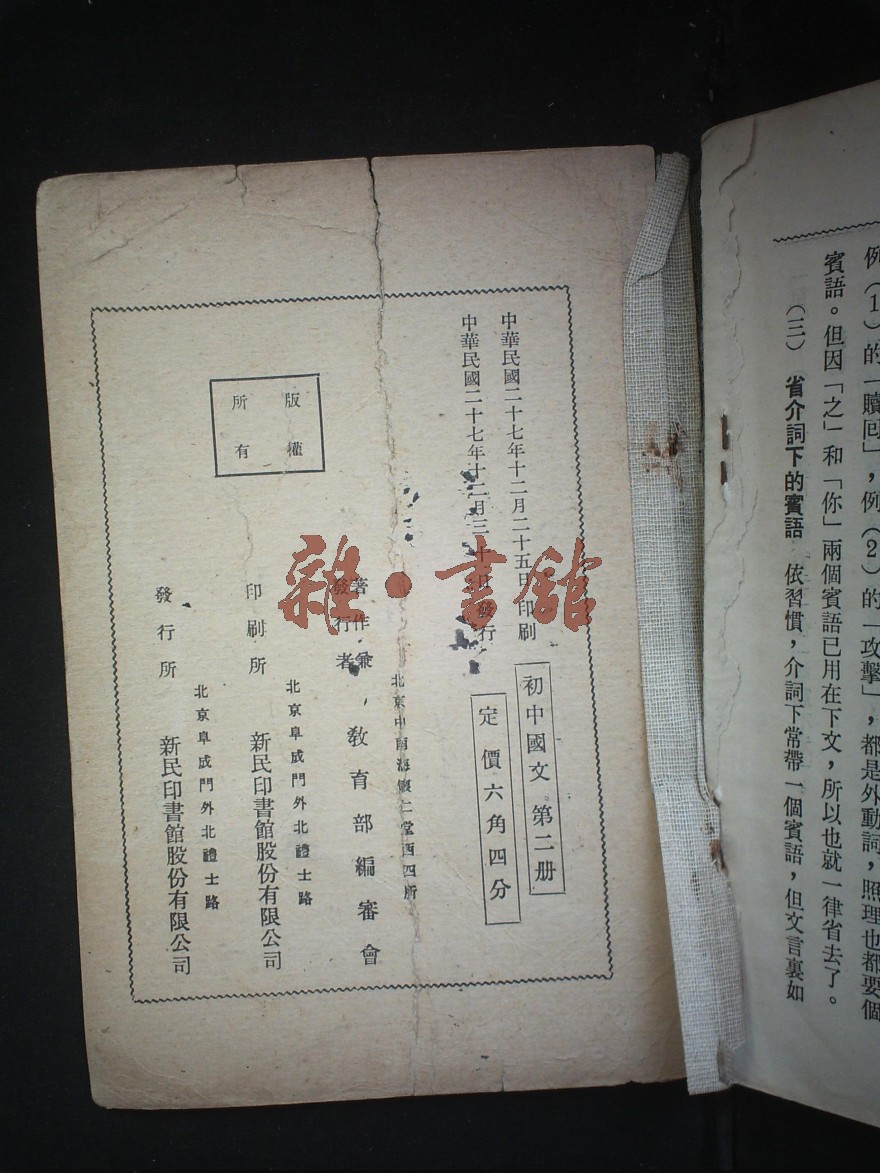 例(1)的「贖回」，例(2)的「攻擊」，都是外動詞，照理也都要個
賓語。但因「之」和「你」兩個賓語已用在下文，所以也就一律省去了。
(三) 省介詞下的賓語 依習慣，介詞下常帶一個賓語，但文言裏如
初中國文 第二册
定價六角四分
中華民國二十七年十二月二十五日印刷
中華民國二十七年十二月三十日發行
北京中南海懷仁堂西四所
著作兼
發行者
教育部編審會
北京阜成門外北禮士路
印刷所
新民印書館股份有限公司
北京阜成門外北禮士路
發行所
新民印書館股份有限公司
版權
所有
雜·書館